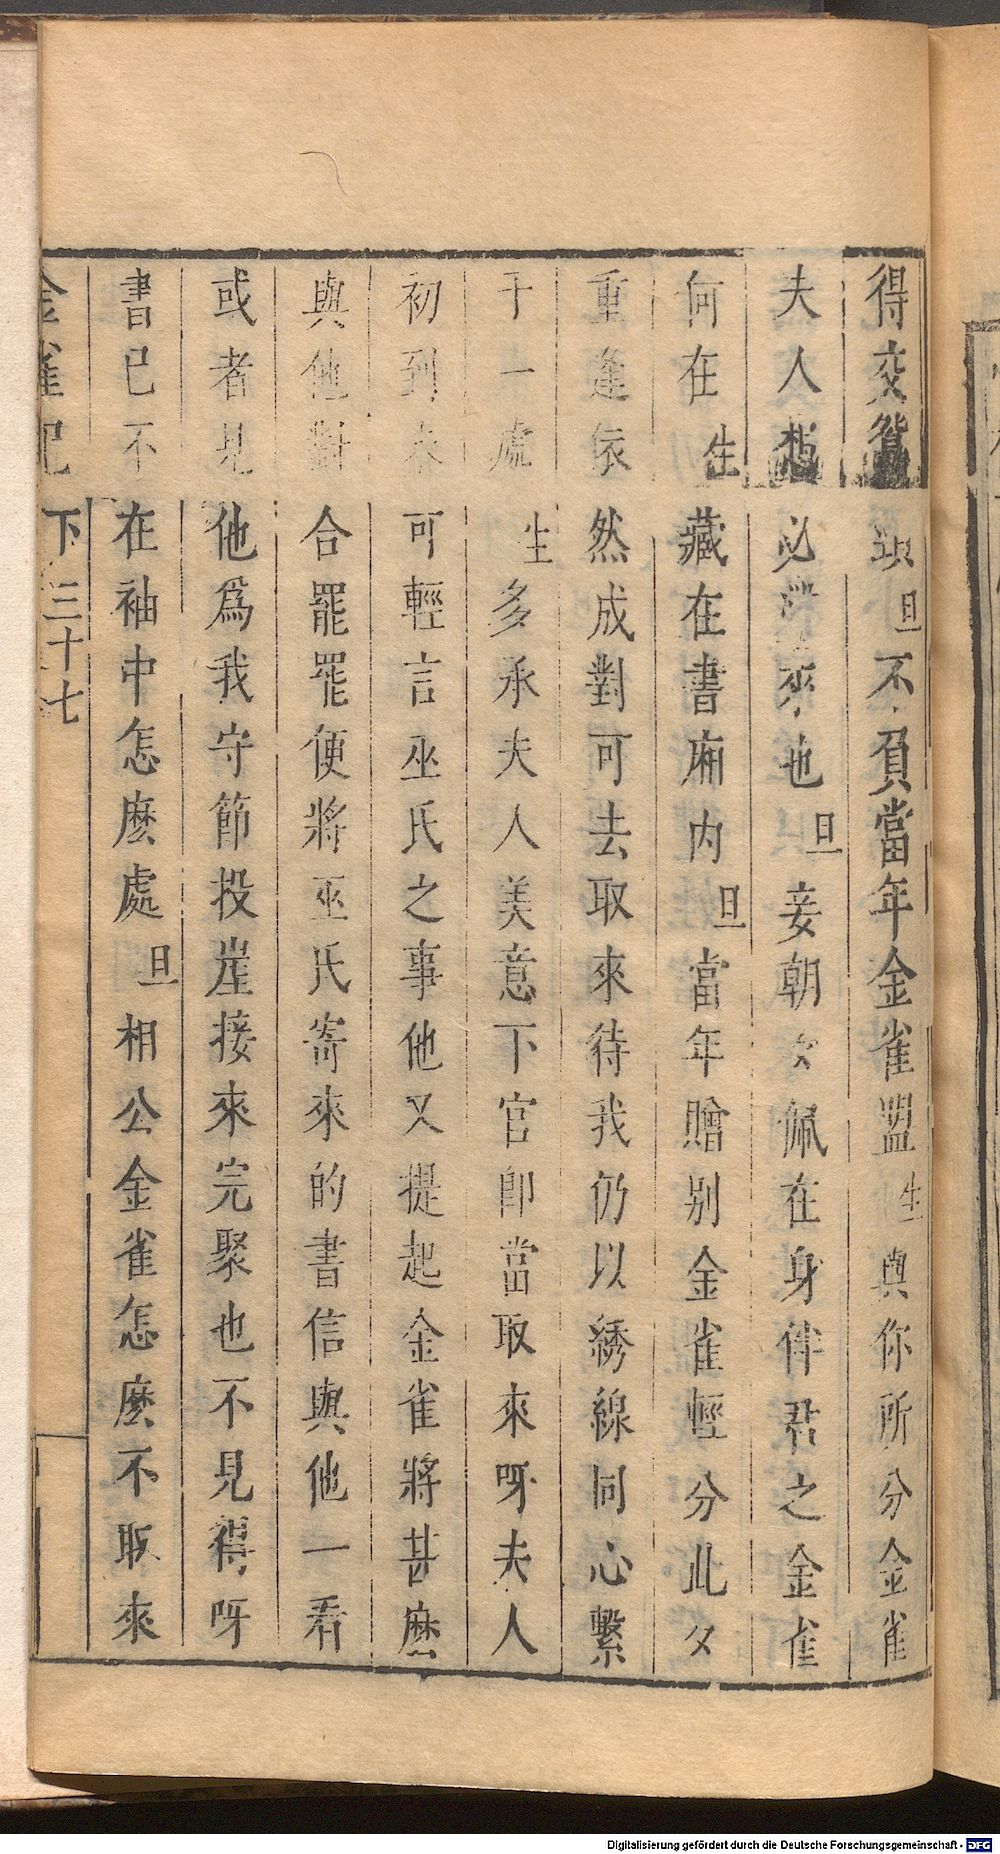 得交鴛頸旦不負當年金雀盟生與你所分金雀
夫人想必帶來也旦妾朝夕佩在身伴君之金雀
何在生藏在書廂內旦當年贈別金雀輕分此夕
重逢依然成對可去取來待我仍以綉線同心繫
于一處生多承夫人美意下官即當取來呀夫人
初到未可輕言巫氏之事他又提起金雀將甚麽
與他對合罷罷便將巫氏寄來的書信與他一看
或者見他爲我守節投崖接來完聚也不見得呀
書已不在袖中怎麽處旦相公金雀怎麽不取來
金雀記 下 三十七
Digitalisierung gefördert durch die Deutsche Forschungsgemeinschaft - DFG